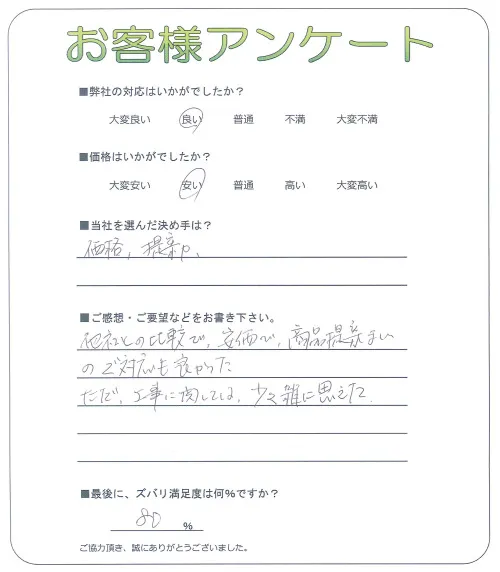 お客様アンケート
■弊社の対応はいかがでしたか？
大変良い 良い 普通 不満 大変不満
■価格はいかがでしたか？
大変安い 安い 普通 高い 大変高い
■当社を選んだ決め手は？
価格，提案
■ご感想・ご要望などをお書き下さい。
他社との比較で，安価で，商品提案
のご対応も良かった
ただ，工事に関しては，少々雑に思えた．
■最後に、ズバリ満足度は何%ですか？
80 %
ご協力頂き、誠にありがとうございました。